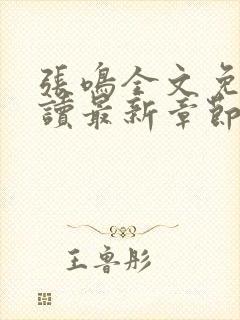 張鳴全文免
讀最新章節
王魯彤